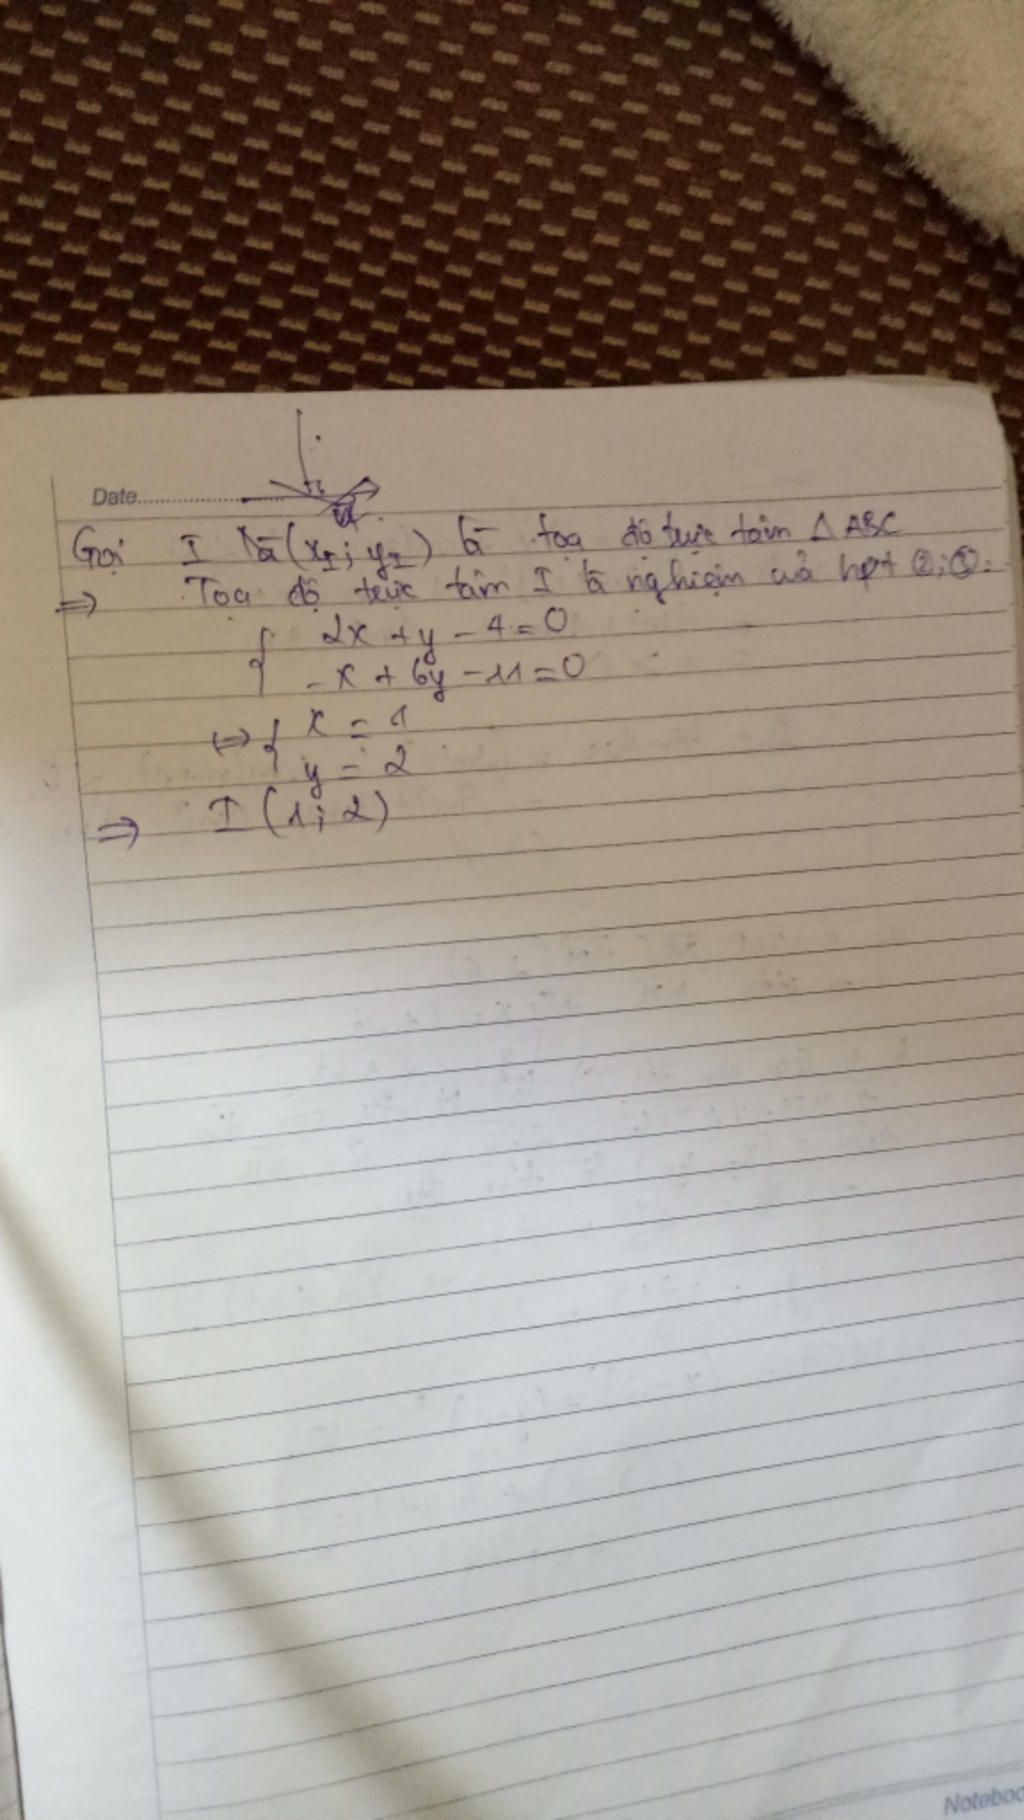 Date
Gọi I là (x_I; y_I) là toạ độ trực tâm Δ ABC
=> Toạ độ trực tâm I là nghiệm của hpt ②;③.
{ 2x + y - 4 = 0
- x + 6y - 11 = 0
<=> { x = 1
y = 2
=> I (1; 2)
Noteboo